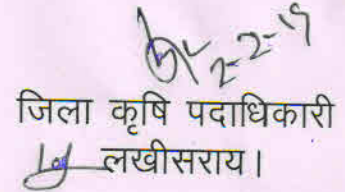 2-2-19
जिला कृषि पदाधिकारी
लखीसराय।